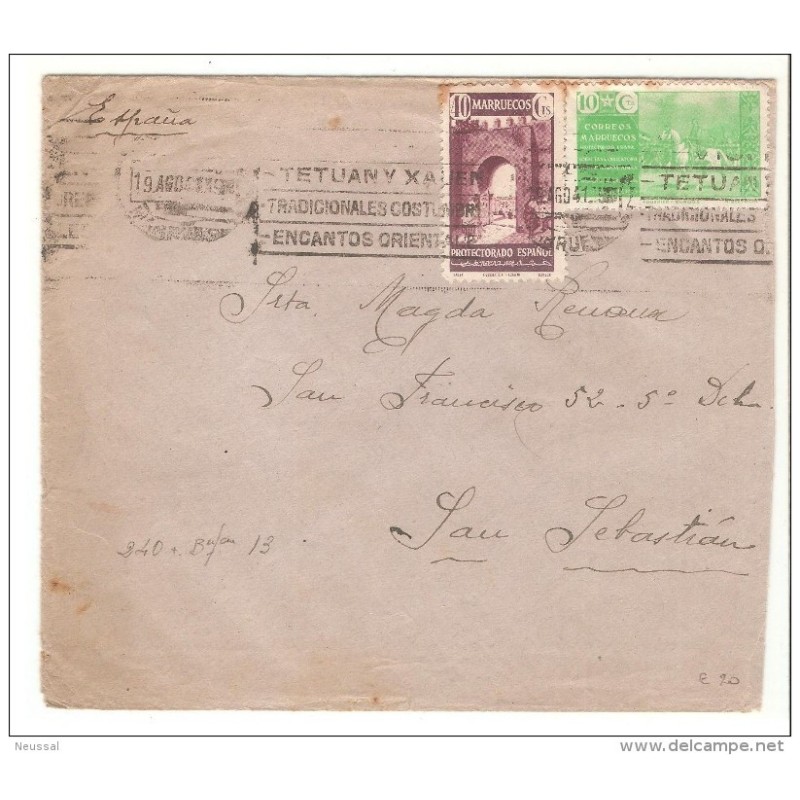 España
40 MARRUECOS Cts
PROTECTORADO ESPAÑOL
10 Cts
CORREOS
MARRUECOS
19 AGO
TETUAN Y XAUEN
TRADICIONALES COSTUMBR
ENCANTOS ORIENTALE
AGO 41
TETUA
TRADICIONALES
ENCANTOS O
Srta. Magda
San Francisco 52-5º Dch.
San Sebastián
240 + 13
€ 20
Neussal
delcampe.net